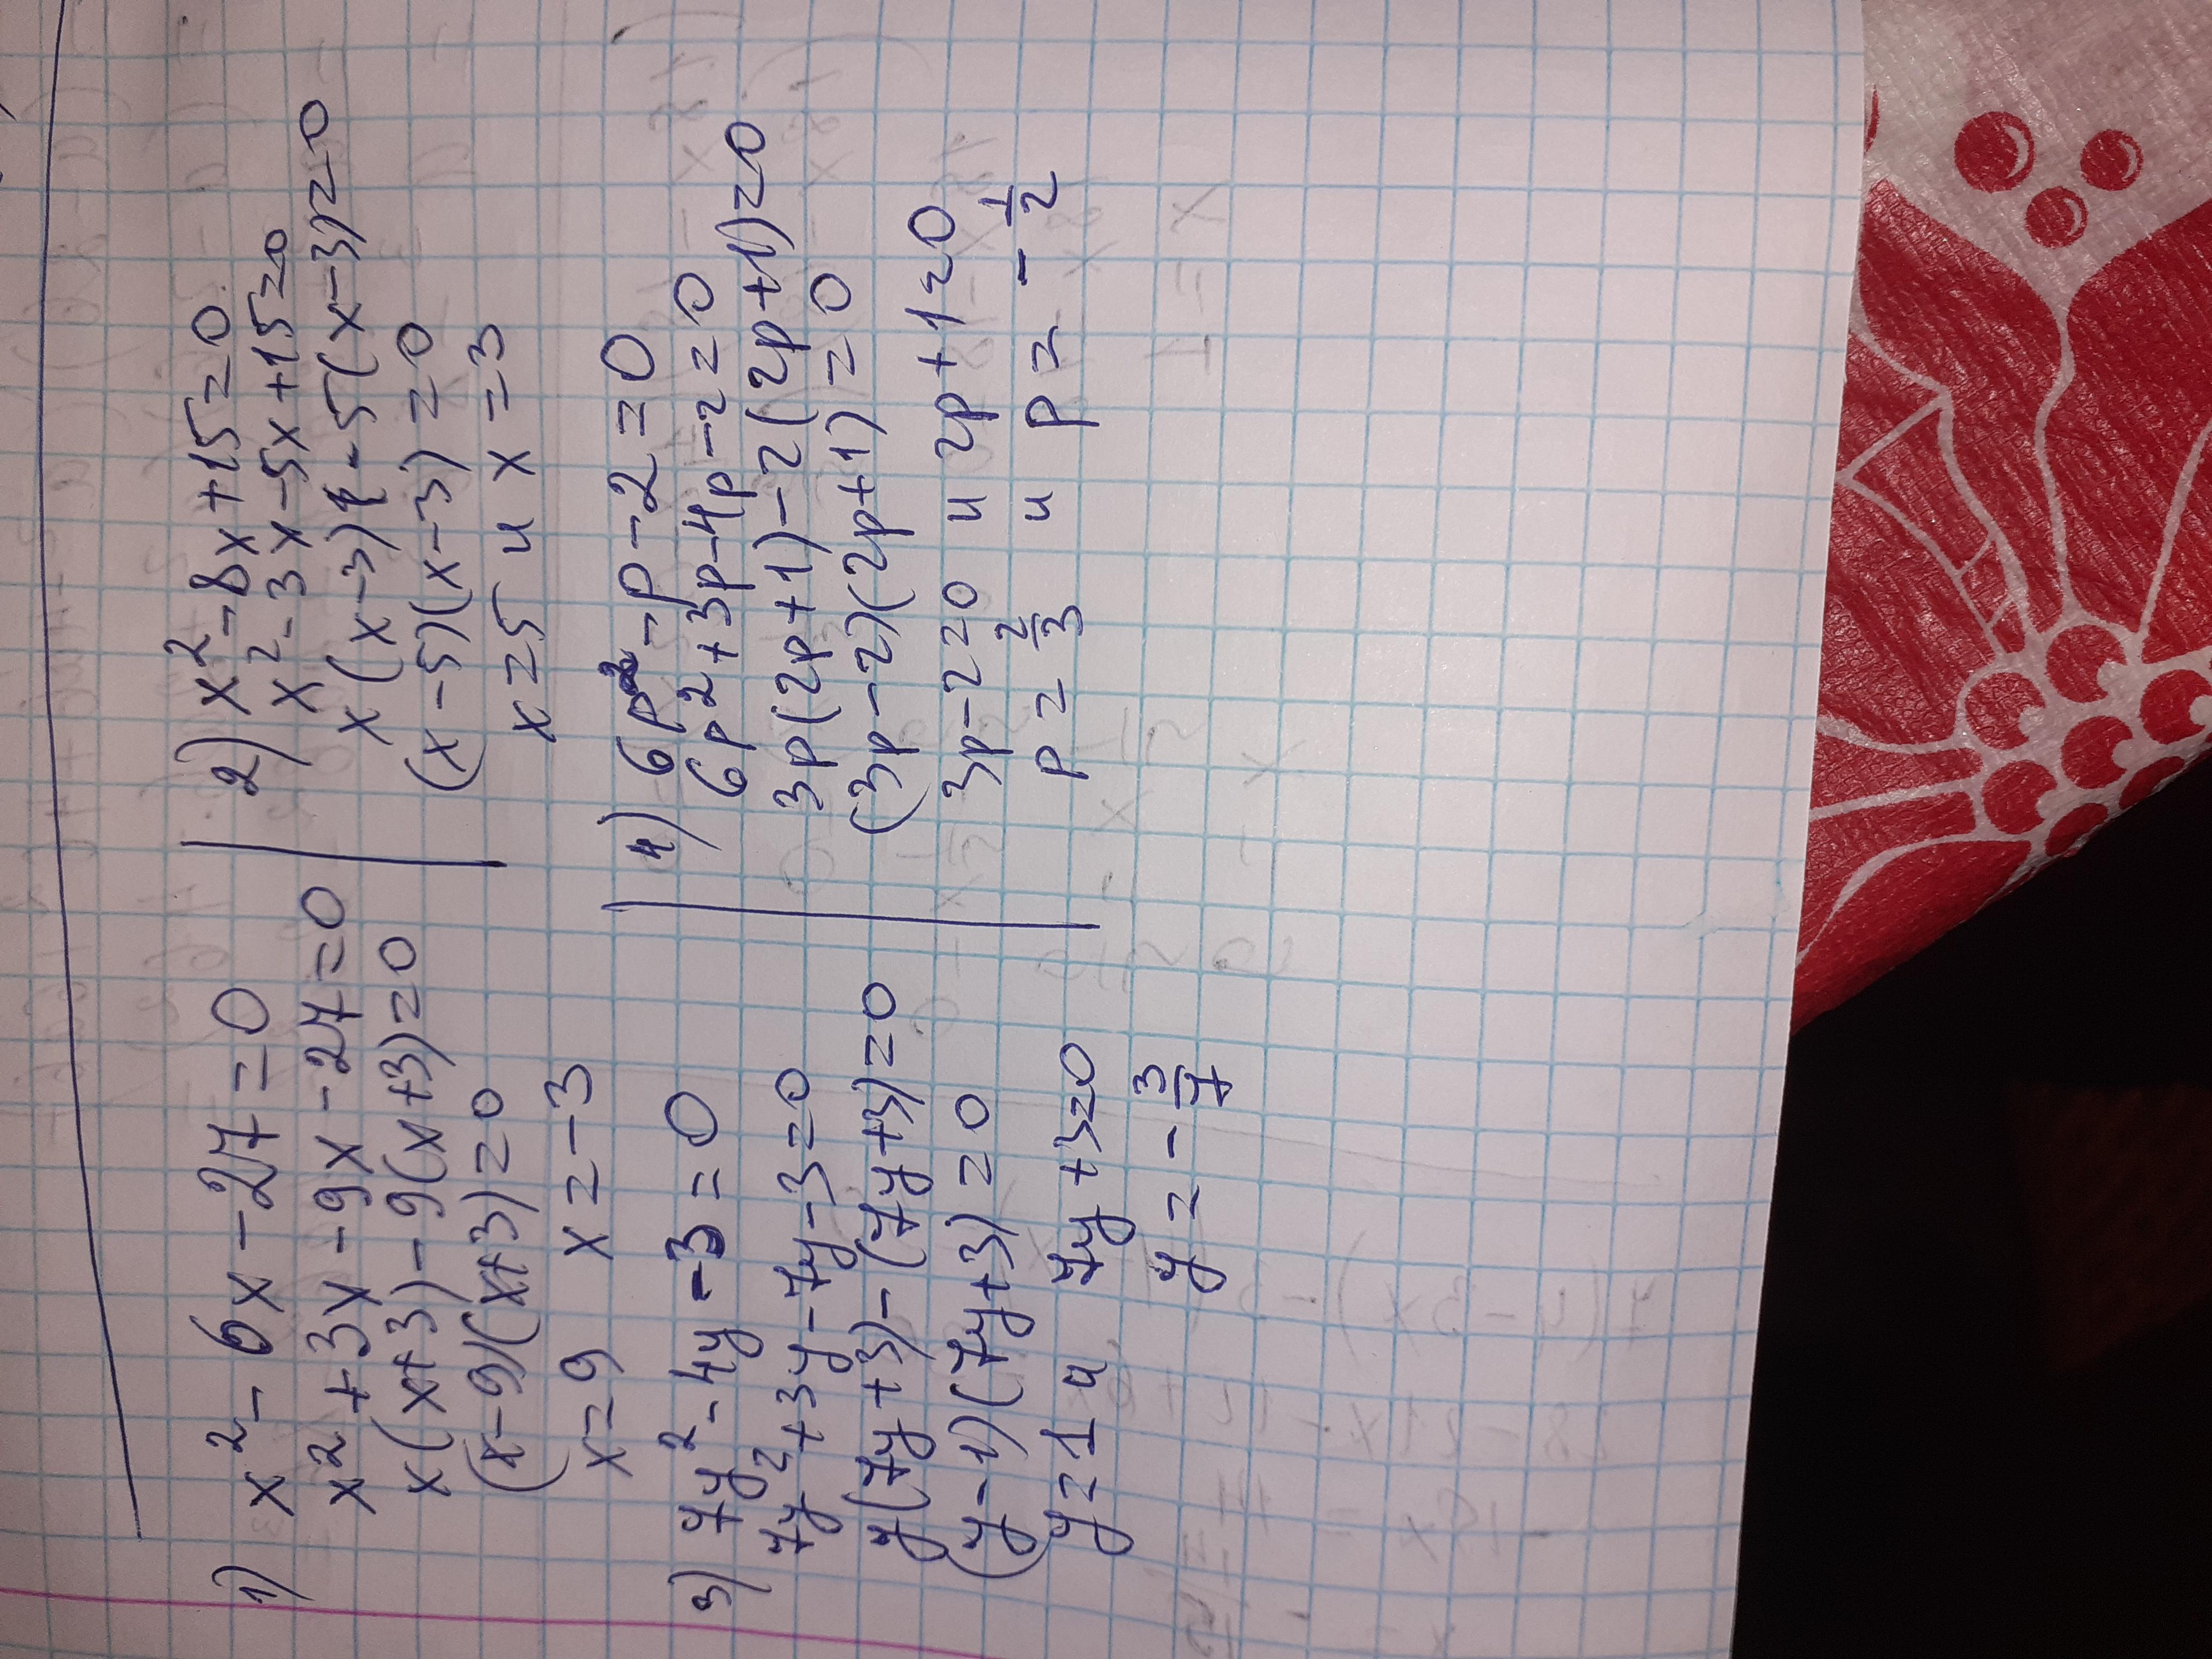 1) x² - 6x - 27 = 0
x² + 3x - 9x - 27 = 0
x(x+3) - 9(x+3) = 0
(x-9)(x+3) = 0
x = 9 x = -3
2) x² - 8x + 15 = 0
x² - 3x - 5x + 15 = 0
x(x-3) - 5(x-3) = 0
(x-5)(x-3) = 0
x = 5 и x = 3
3) 7y² - 4y - 3 = 0
7y² + 3y - 7y - 3 = 0
y(7y+3) - (7y+3) = 0
(y-1)(7y+3) = 0
y = 1 и 7y + 3 = 0
y = -3/7
4) 6p² - p - 2 = 0
6p² + 3p - 4p - 2 = 0
3p(2p+1) - 2(2p+1) = 0
(3p-2)(2p+1) = 0
3p - 2 = 0 и 2p + 1 = 0
p = 2/3 и p = -1/2